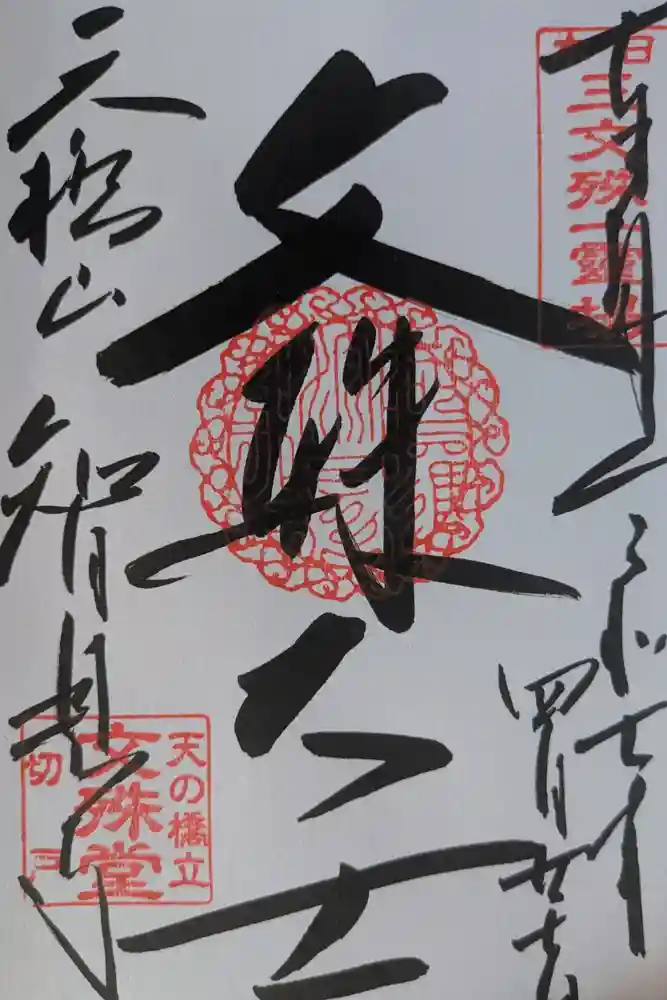 奉拝
日本三文殊一靈場
令和七年
四月廿
文殊大士
天橋山
智恩寺
天の橋立
文殊堂
切戸